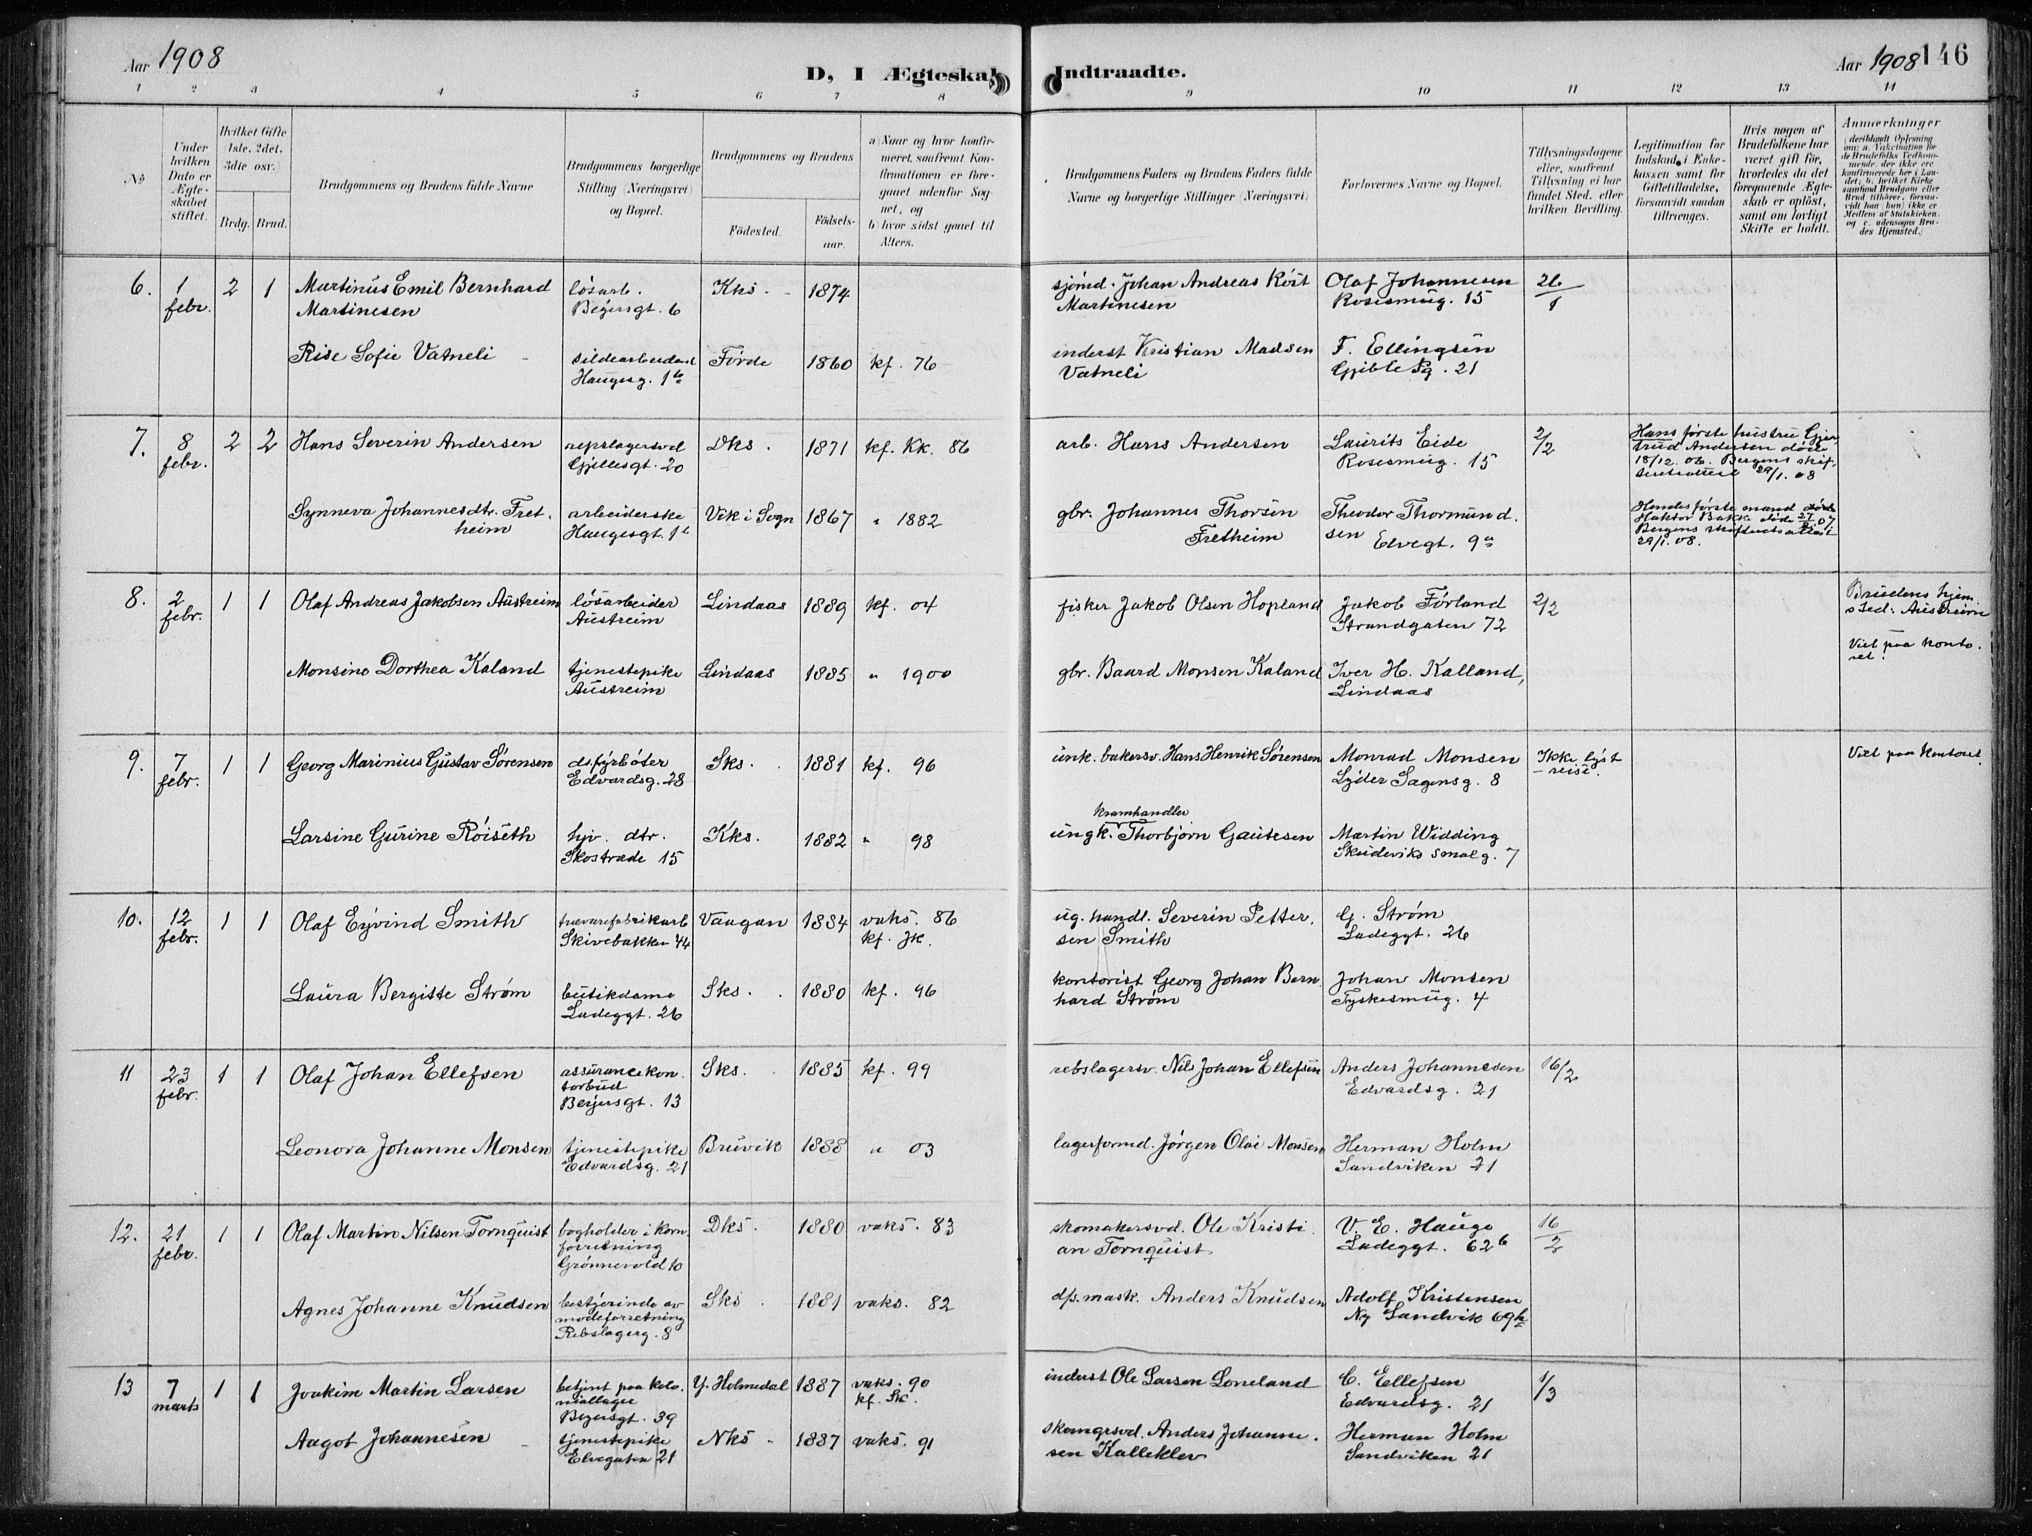 Aar 1908
D, I Ægteskab Indtraadte.
Aar 1908 146
1 2 3 4 5 6 7 8 9 10 11 12 13 14
No
Under hvilken Dato er Ægteskabet stiftet.
Hvilket Gifte (1ste, 2det, 3die osv.)
Brdg. Brud.
Brudgommens og Brudens fulde Navne
Brudgommens borgerlige Stilling (Næringsvei) og Bopæl.
Brudgommens og Brudens
Födested.
Födselsaar.
a) Naar og hvor konfirmeret, saafremt Konfirmationen er foregaaet udenfor Sognet, og
b) hvor sidst gaaet til Alters.
Brudgommens Faders og Brudens Faders fulde Navne og borgerlige Stillinger (Næringsvei)
Forlovernes Navne og Bopæl.
Tillysningsdagene eller, saafremt Tillysning ei har fundet Sted, efter hvilken Bevilling.
Legitimation for Indskud i Enkekassen samt for Giftetilladelse, forsaavidt saadan tiltrænges.
Hvis nogen af Brudefolkene har været gift för, hvorledes da det foregaaende Ægteskab er oplöst, samt om lovligt Skifte er holdt.
Anmerkninger
(deriblandt Oplysning om: a. Vakcination for de Brudefolks Vedkommende, der ikke ere konfirmerede her i Landet; b. hvilket Kirkesamfund Brudgom eller Brud tilhörer, forsaavidt han (hun) ikke er Medlem af Statskirken, og c. udensogns Brudes Hjemsted.)
6. 1 febr. 2 1 Martinus Emil Bernhard Martinesen
løsarb. Beyersgt. 6 Kks. 1874
sjömd. Johan Andreas Röst Martinesen
Olaf Johannesen Rosesmug. 15 26/1
Rise Sofie Vatneli
sildearbeidersk Haugesg. 1b Förde 1860 kf. 76
inderst Kristian Madsen Vatneli
F. Ellingsen 21
7. 8 febr. 2 2 Hans Severin Andersen
repslagersvd Gjellesgt. 20 Dks. 1871 kf. Kk. 86
arb. Hans Andersen
Laurits Eide Rosesmug. 15 2/2
Hans første hustru Gjertrud Andersen döde 18/12.06. Bergens skifteretsattest 29/1.08
Synneva Johannesdtr. Fretheim
arbeiderske Haugesgt. 1b Vik i Sogn 1867 " 1882
gbr. Johannes Thorsen Fretheim
Theodor Thormundsen Elvegt. 9a
Hendes første mand Bakk døde 07 Bergens skifteretsattest 29/1.08.
8. 2 febr. 1 1 Olaf Andreas Jakobsen Austreim
løsarbeider Austreim Lindaas 1889 kf. 04
fisker Jakob Olsen Hopland
Jakob Förland Strandgaten 72 2/2
Brudens hjemsted: Austreim
Viet paa kontoret.
Monsine Dorthea Kaland
tjenestepike Austreim Lindaas 1885 " 1900
gbr. Baard Monsen Kaland
Iver H. Kalland, Lindaas
9. 7 febr. 1 1 Georg Marinius Gustav Sørensen
ds.fyrbøter Edvardsg. 28 Sks. 1881 kf. 96
unk. bakersv. Hans Henrik Sørensen
Monrad Monsen Lyder Sagensg. 8
Ikke lyst – reise.
Viet paa kontoret.
Larsine Gurine Röiseth
hjv. dtr. Skostræde 15 Kks. 1882 " 98
kramhandler
ungk. Thorbjørn Gautesen
Martin Widding Skuteviks smalg. 7
10. 12 febr. 1 1 Olaf Eyvind Smith
trævarefabrikarb Skivebakken 44 Vaagan 1884 vaks. 86 kf. Jk.
ug. handl. Severin Pettersen Smith
G. Strøm Ladeggt. 26
Laura Bergitte Strøm
butikdame Ladeggt. 26 Sks. 1880 kf. 96
kontorist Georg Johan Bernhard Strøm
Johan Monsen Tyskesmug. 4
11 23 febr. 1 1 Olaf Johan Ellefsen
assurancekontorbud Beyersgt. 13 Sks. 1885 kf. 99
rebslagersv. Nils Johan Ellefsen
Anders Johannesen Edvardsg. 21 16/2
Leonora Johanne Monsen
tjenestepike Edvardsg. 21 Bruvik 1888 " 03
lagerformd. Jørgen Olai Monsen
Herman Holm Sandviken 21
12. 21 febr. 1 1 Olaf Martin Nilsen Tornquist
bogholder i kornforretning Grønnevold 10 Dks. 1880 vaks. 83
skomakersvd. Ole Kristian Tornquist
V. E. Hauge Ladeggt. 62b 16/2
Agnes Johanne Knudsen
bestyrinde av modeforretning Rebslagerg. 8 Sks. 1881 vaks. 82
dps.mask. Anders Knudsen
Adolf Kristensen Ny Sandvik 69
13 7 marts 1 1 Joakim Martin Larsen
betjent paa koloniallager Beyersgt. 39 Y. Holmedal 1887 vaks. 90 kf. Sk.
inderst Ole Larsen Loneland
C. Ellefsen Edvardsg. 21 1/3
Aagot Johannesen
tjenestepike Elvegaten 21 Nks 1887 vaks. 91
skomgrsvd. Anders Johannesen Kalleklev
Herman Holm Sandviken 21